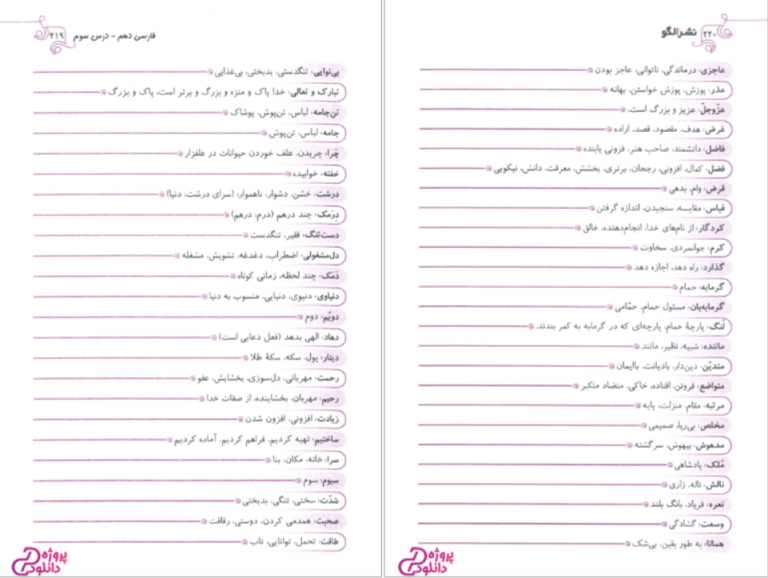 فارسی دهم - درس سوم ۲۱۹
بی‌نوایی: تنگدستی، بدبختی، بی‌غذایی
تبارک و تعالی: خدا پاک و منزه و بزرگ و برتر است، پاک و بزرگ
تن‌جامه: لباس، تن‌پوش، پوشاک
جامه: لباس، تن‌پوش
چَرا: چریدن، علف خوردن حیوانات در علفزار
خفته: خوابیده
درشت: خشن، دشوار، ناهموار، (سرای درشت، دنیا)
دِرَمَک: چند درهم (درم، درهم)
دست‌تنگ: فقیر، تنگدست
دل‌مشغولی: اضطراب، دغدغه، تشویش، مشغله
دَمَک: چند لحظه، زمانی کوتاه
دنیاوی: دنیوی، دنیایی، منسوب به دنیا
دویّم: دوم
دهاد: الهی بدهد (فعل دعایی است)
دینار: پول، سکه، سکهٔ طلا
رحمت: مهربانی، دل‌سوزی، بخشایش، عفو
رحیم: مهربان، بخشاینده، از صفات خدا
زیادت: افزونی، افزون شدن
ساختیم: تهیه کردیم، فراهم کردیم، آماده کردیم
سرا: خانه، مکان، بنا
سیوم: سوم
شدّت: سختی، تنگی، بدبختی
صحبت: همدمی کردن، دوستی، رفاقت
طاقت: تحمل، توانایی، تاب
پروژه دانلود
۲۲۰ نشرالگو
عاجزی: درماندگی، ناتوانی، عاجز بودن
عذر: پوزش، پوزش خواستن، بهانه
عزّوجلّ: عزیز و بزرگ است.
غرض: هدف، مقصود، قصد، اراده
فاضل: دانشمند، صاحب هنر، فزونی یابنده
فضل: کمال، افزونی، رجحان، برتری، بخشش، معرفت، دانش، نیکویی
قرض: وام، بدهی
قیاس: مقایسه، سنجیدن، اندازه گرفتن
کردگار: از نام‌های خدا، انجام‌دهنده، خالق
کرم: جوانمردی، سخاوت
گذارد: راه دهد، اجازه دهد
گرمابه: حمام
گرمابه‌بان: مسئول حمام، حمّامی
لُنگ: پارچهٔ حمام، پارچه‌ای که در گرمابه به کمر بندند.
ماننده: شبیه، نظیر، مانند
متدیّن: دین‌دار، بادیانت، باایمان
متواضع: فروتن، افتاده، خاکی، متضاد متکبر
مرتبه: مقام، منزلت، پایه
مخلص: بی‌ریا، صمیمی
مدهوش: بیهوش، سرگشته
مُلک: پادشاهی
نالش: ناله، زاری
نعره: فریاد، بانگ بلند
وسعت: گشادگی
همانا: به طور یقین، بی‌شک
پروژه دانلود